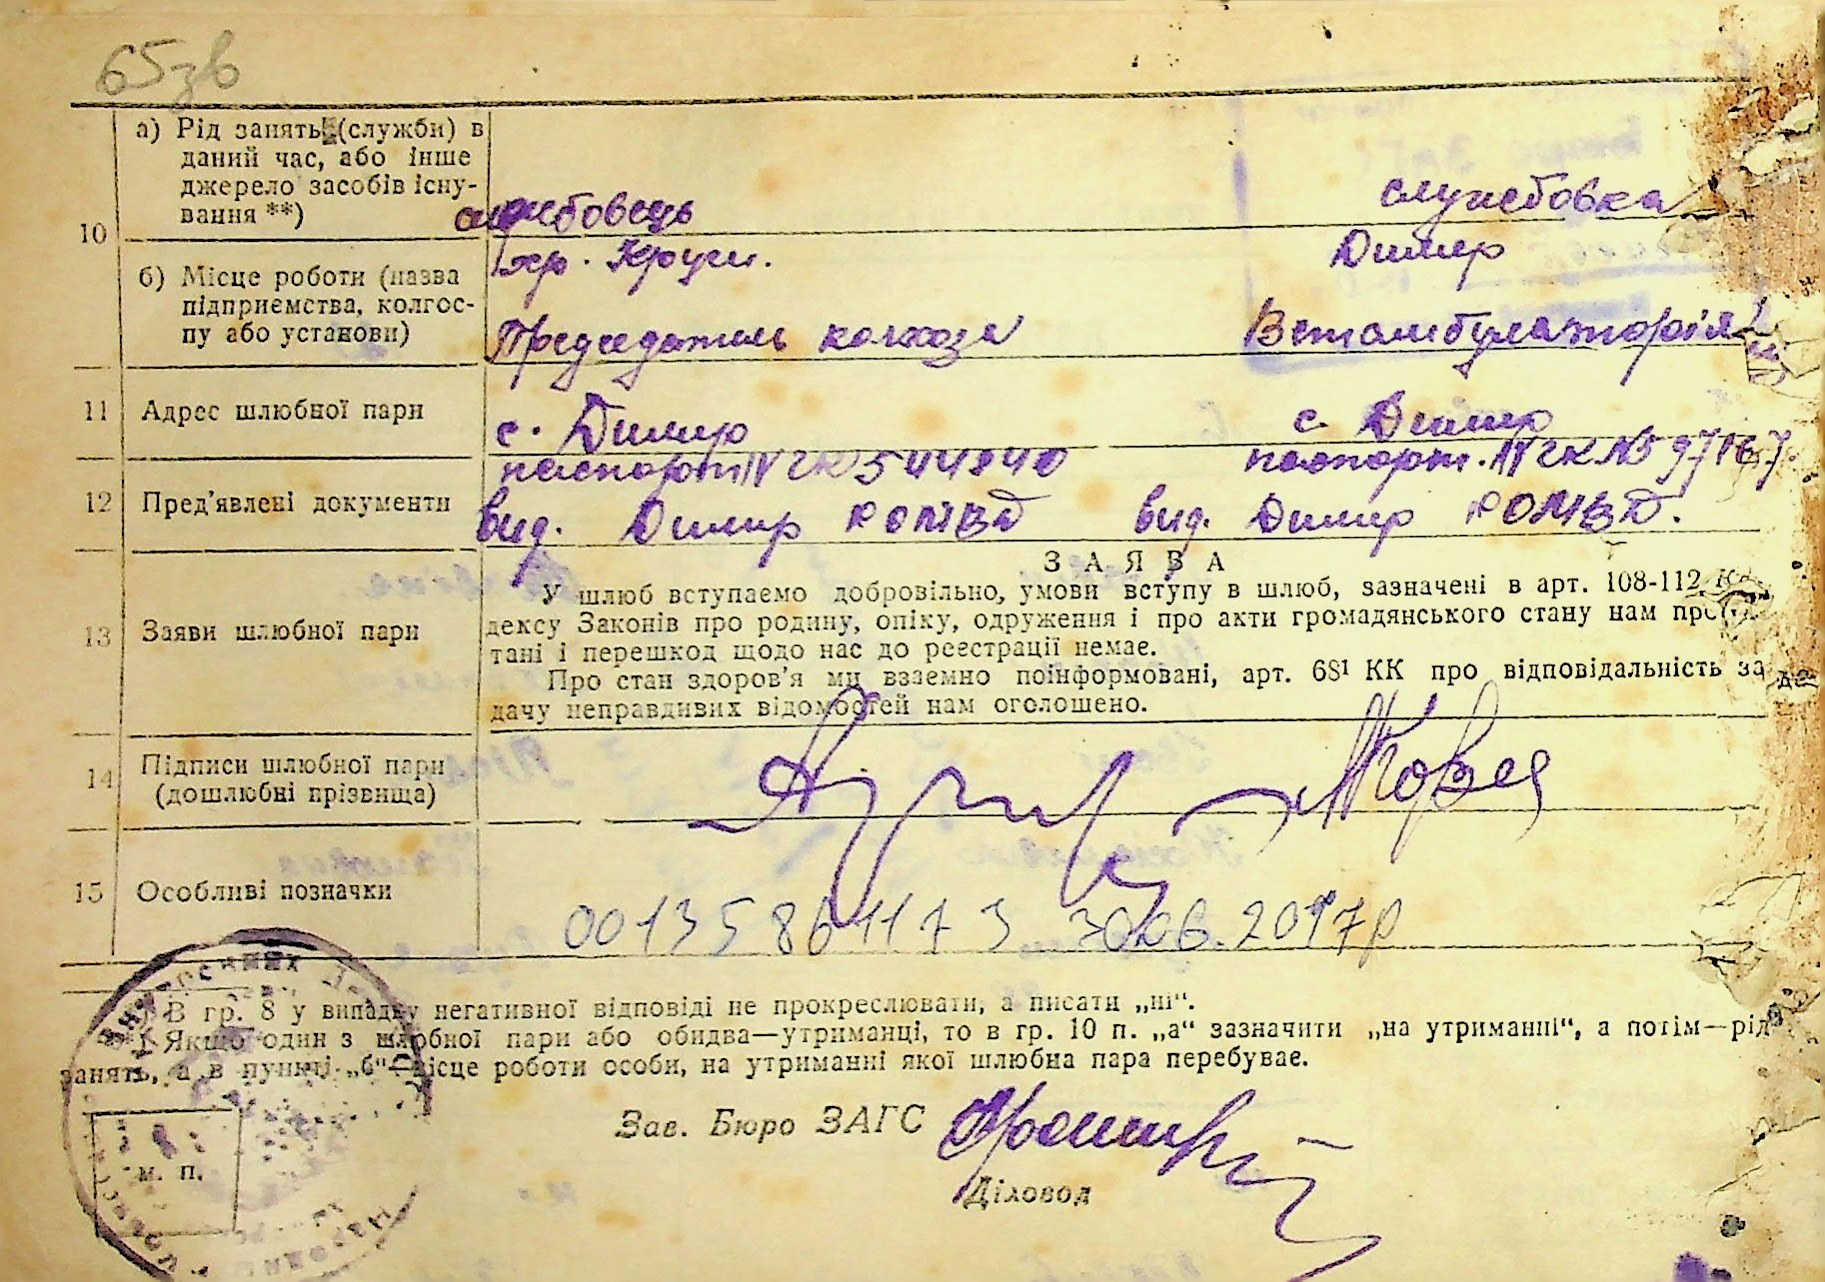 65зв
10
а) Рід занять (служби) в
даний час, або інше
джерело засобів існу-
вання **)
службовець
службовка
б) Місце роботи (назва
підприємства, колгос-
пу або установи)
Димир
Председатель колхоза
Ветамбулаторія
11 Адрес шлюбної пари
с. Димир
с. Димир
12 Пред'явлені документи
паспорт IV ЧК
паспорт. IV ЧК №
вид. Димир РОМВД
вид. Димир РОМВД.
13 Заяви шлюбної пари
ЗАЯВА
У шлюб вступаємо добровільно, умови вступу в шлюб, зазначені в арт. 108-112 Ко-
дексу Законів про родину, опіку, одруження і про акти громадянського стану нам прочи-
тані і перешкод щодо нас до реєстрації немає.
Про стан здоров'я ми взаємно поінформовані, арт. 68¹ КК про відповідальність за
дачу неправдивих відомостей нам оголошено.
14 Підписи шлюбної пари
(дошлюбні прізвища)
15 Особливі позначки
00135861173 30.06.2017р
В гр. 8 у випадку негативної відповіді не прокреслювати, а писати „ні“.
Якщо один з шлюбної пари або обидва—утриманці, то в гр. 10 п. „а“ зазначити „на утриманні“, а потім—рід
занять, а в пункті „б“—місце роботи особи, на утриманні якої шлюбна пара перебуває.
м. п.
Зав. Бюро ЗАГС
Діловод